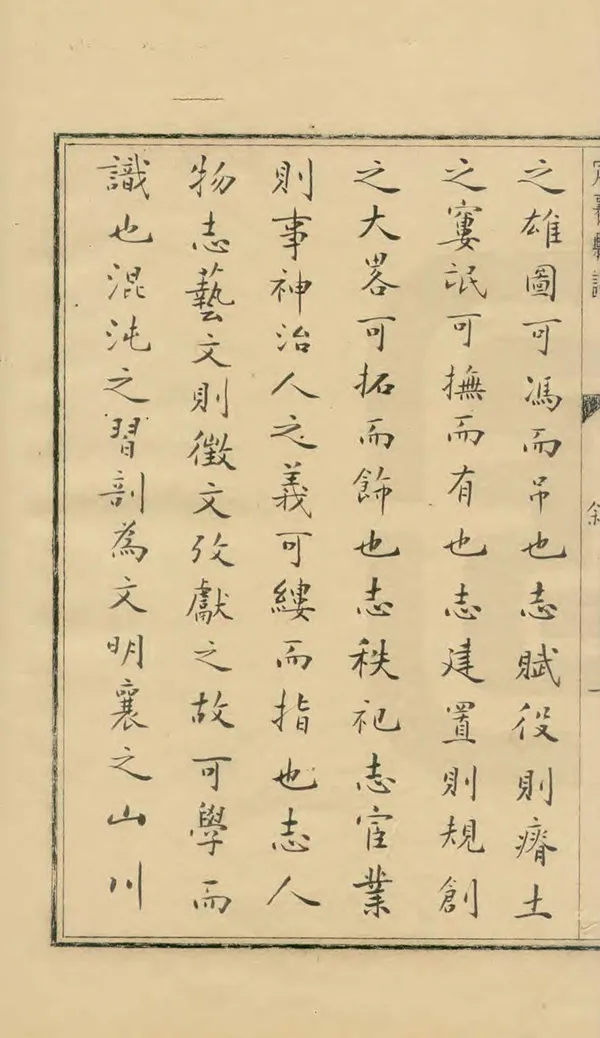 之雄圖可馮而吊也志賦役則瘠土
之窶氓可撫而有也志建置則規創
之大畧可拓而飾也志秩祀志宦業
則事神治人之義可縷而指也志人
物志藝文則徵文攷獻之故可學而
識也混沌之習剖為文明襄之山川